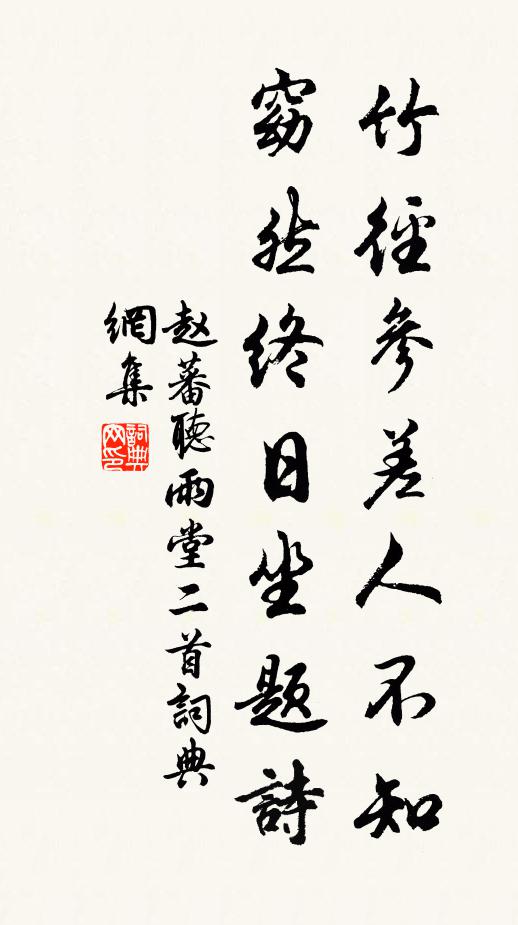 竹徑參差人不知
窈然終日坐題詩
赵蕃聽雨堂二首詞典
網集
詞典网印